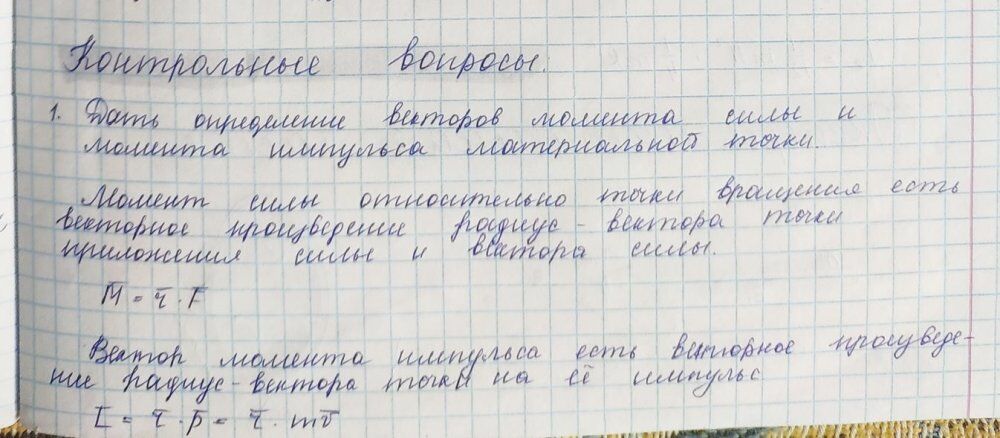 Контрольные вопросы.
1. Дать определение векторов момента силы и
момента импульса материальной точки.
Момент силы относительно точки вращения есть
векторное произведение радиус-вектора точки
приложения силы и вектора силы.
M̄ = r̄ · F̄
Вектор момента импульса есть векторное произведе-
ние радиус-вектора точки на её импульс
L̄ = r̄ · p̄ = r̄ · mv̄